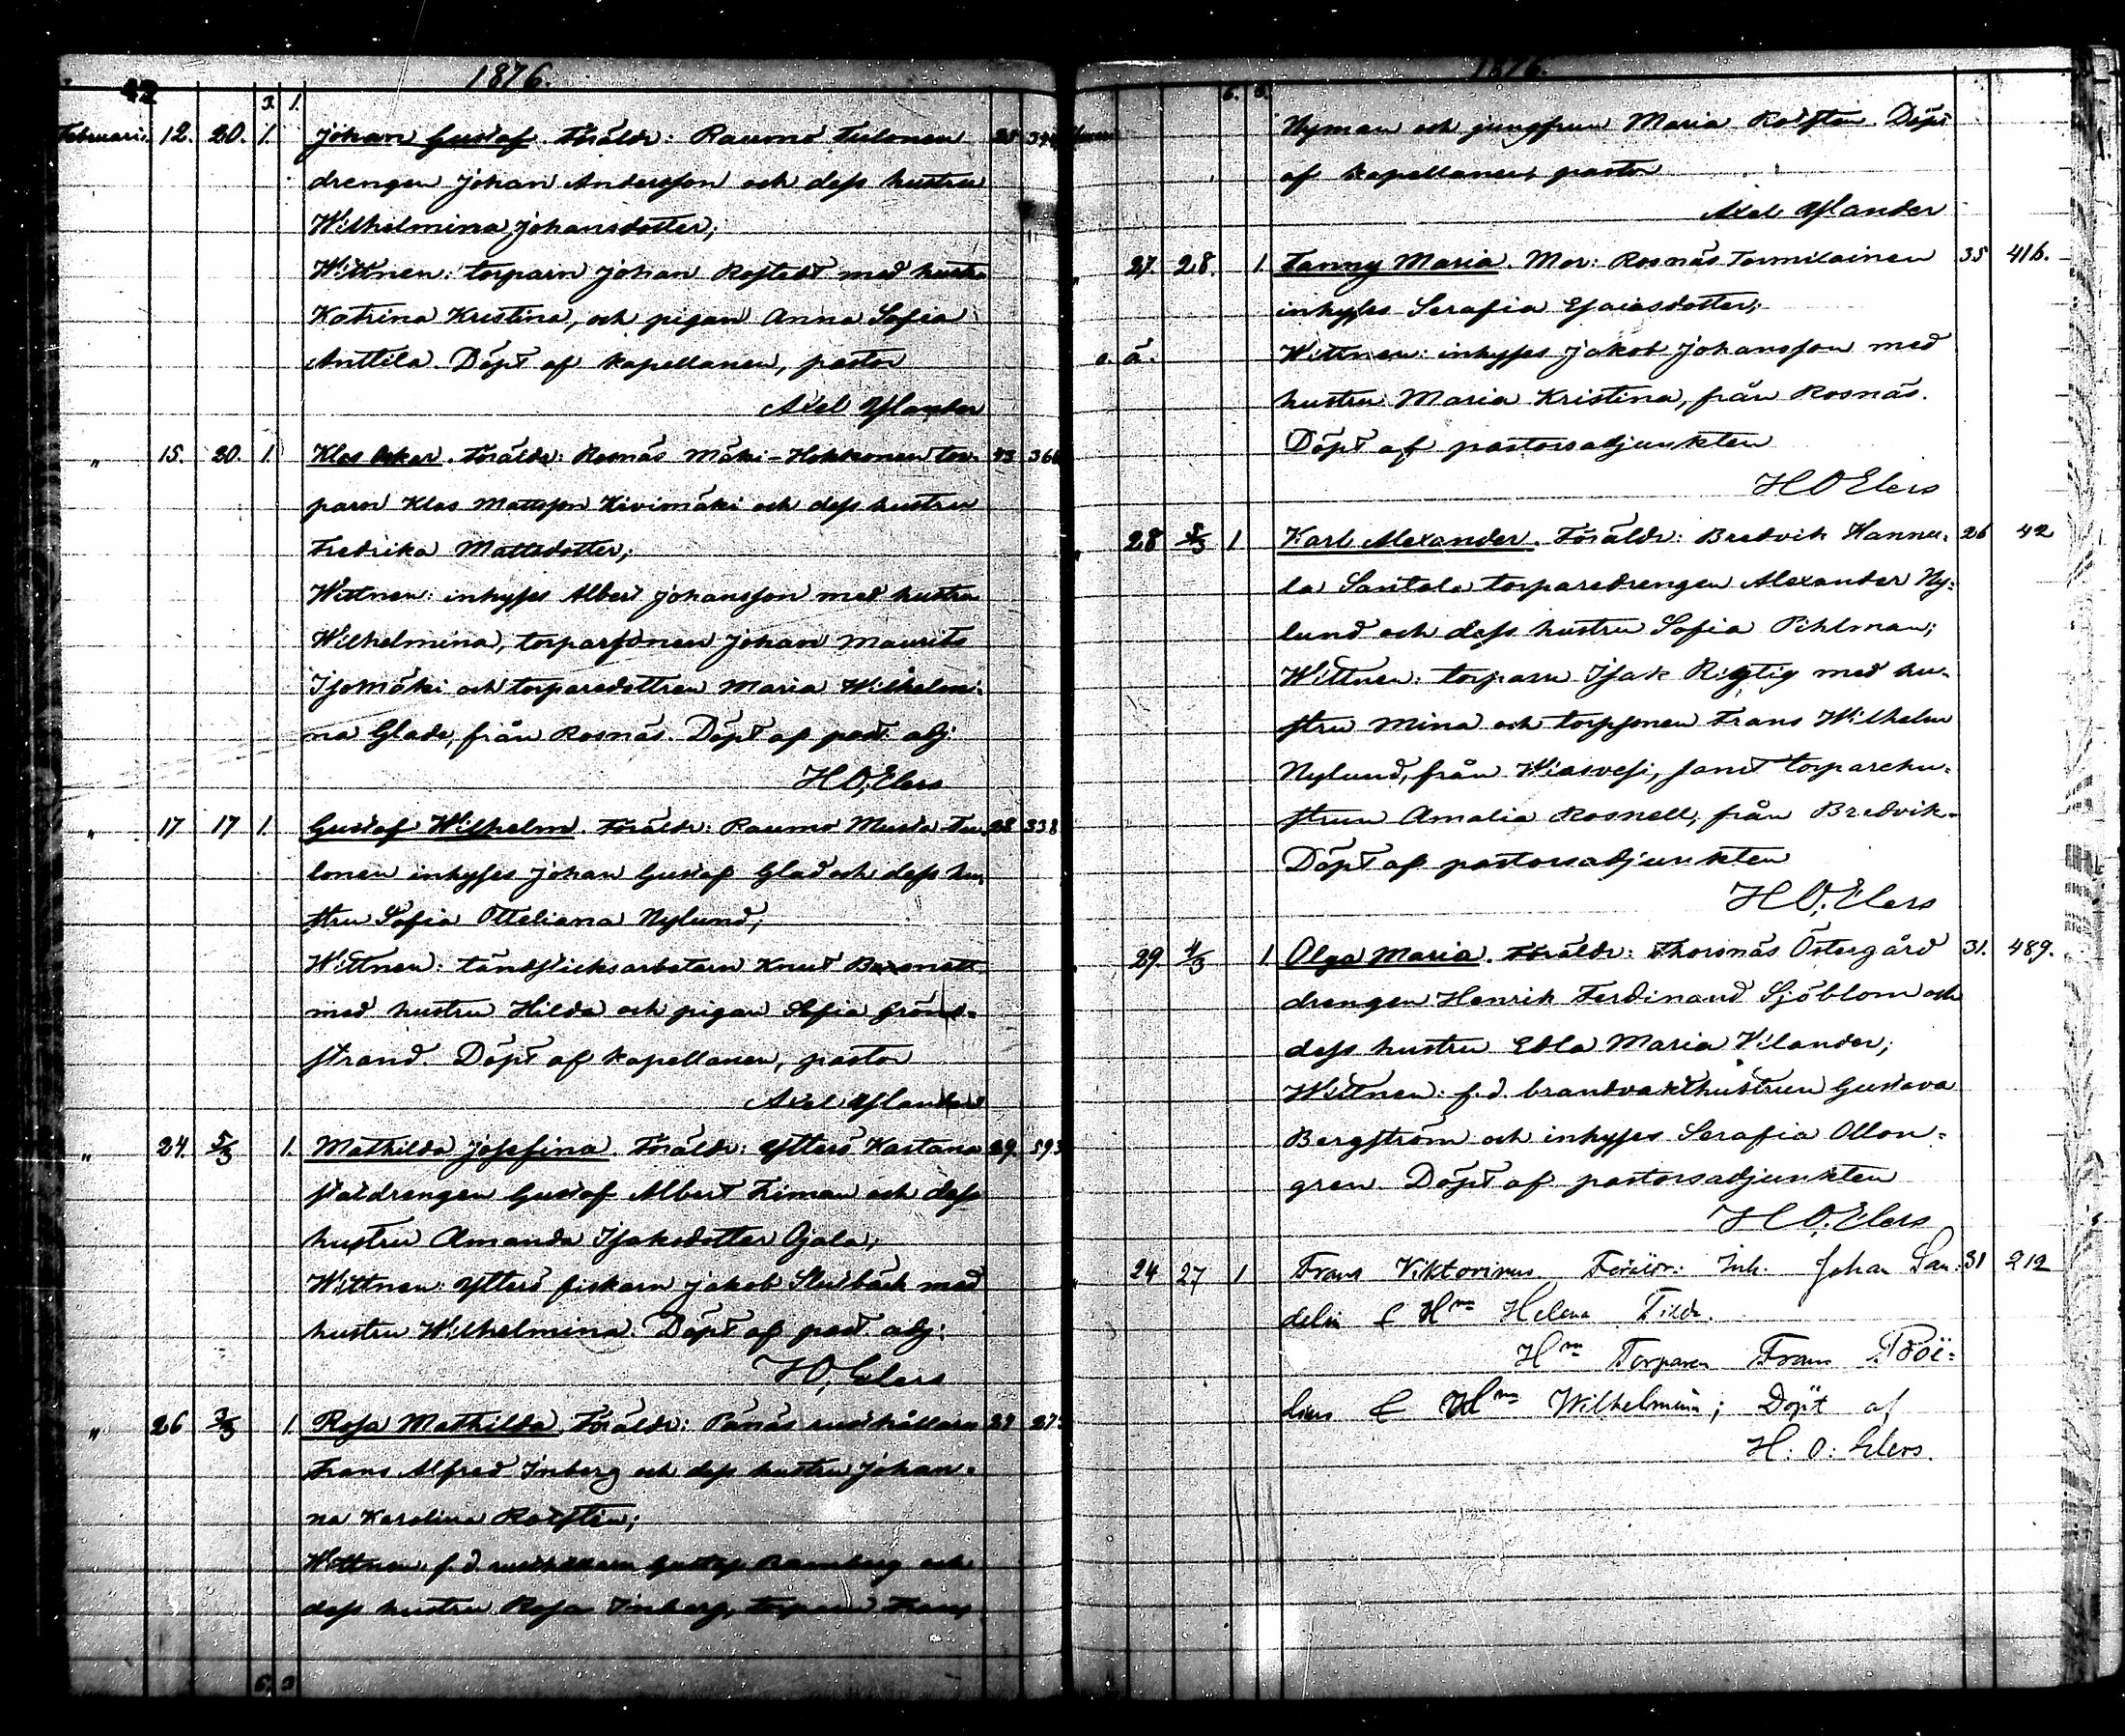 42
1876.
3. 1.
Februari. 12. 20. 1. Johan Gustaf. Föräldr: Raumo Tulonen 28
drengen Johan Andersson och dess hustru
Wilhelmina Johansdotter;
Wittnen: torparn Johan Rostedt med hustru
Katrina Kristina, och pigan Anna Sofia
Anttila. Döpt af kapellanen, pastor
Axel Ylander
" 15. 20. 1. Klas Oskar. Föräldr: Rosnäs Mäki-Hokkonen tor-
parn Klas Mattsson Kivimäki och dess hustru
Fredrika Mattsdotter;
Wittnen: inhyses Albert Johansson med hustru
Wilhelmina, torparsonen Johan Maurits
Isomäki och torparedottren Maria Wilhelmi-
na Glade, från Rosnäs. Döpt af past. adj:
H O; Elers
" 17 17 1. Gustaf Wilhelm. Föräldr: Raumo Musta Tu- 28 338
lonen inhyses Johan Gustaf Glad och dess hu-
stru Sofia Otteliana Nylund;
Wittnen: tändsticksarbetarn Knut
med hustru Hilda och pigan Sofia Grönd-
strand. Döpt af kapellanen, pastor
Axel Ylander
" 24. 5/3 1. Mathilda Josefina. Föräldr: Ytterö Kastana 29. 593
statdrengen Gustaf Albert Friman och dess
hustru Amanda Isaksdotter Ojala;
Wittnen: Ytterö fiskarn Jakob Slussbäck med
hustru Wilhelmina. Döpt af past. adj:
H O; Elers
" 26 3/3 1. Rosa Mathilda. Föräldr: Pänäs rusthållarn 29
Frans Alfred Inberg och dess hustru Johan-
na Karolina Rosstén;
Wittnen: f.d. rusthållarn Gustaf Ramberg och
dess hustru Rosa Inberg, torparn Frans
6. 3
1876.
6. 3.
Nyman och jungfrun Maria Rosstén. Döpt
af kapellanen, pastor
Axel Ylander
" 27. 28. 1. Fanny Maria. Mor: Rosnäs Tommilainen 35 416.
inhyses Serafia Esaiasdotter;
o. ä. Wittnen: inhyses Jakob Johansson med
hustru Maria Kristina, från Rosnäs.
Döpt af pastorsadjunkten
H O Elers
" 28 5/3 1 Karl Alexander. Föräldr: Bredvik Hannu- 26 42
la Santala torparedrengen Alexander Ny-
lund och dess hustru Sofia Pihlman;
Wittnen: torparn Isak Rigtig med hu-
stru Mina och torpsonen Frans Wilhelm
Nylund, från Wiasvesi, samt torparehu-
strun Amalia Rosnell, från Bredvik.
Döpt af pastorsadjunkten
H O; Elers
29. 4/3 1. Olga Maria. Föräldr: Thorsnäs Östergård 31. 489.
drengen Henrik Ferdinand Sjöblom och
dess hustru Edla Maria Vilander;
Wittnen: f.d. brandvakthustrun Gustava
Bergström och inhyses Serafia Ollon-
gren. Döpt af pastorsadjunkten
H O. Elers
" 24 27 1 Frans Viktorinus. Föräldr: Inh. Johan San- 31 212
delin & Hm Helena
Hm Torparen Frans
& Hm Wilhelmina; Döpt af
H. O: Elers.